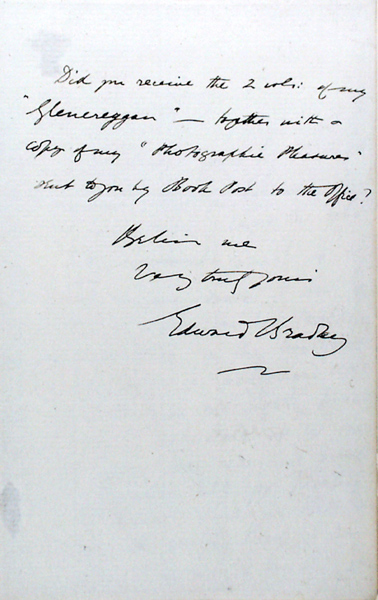 Did you receive the 2 vols: of my
"Glencreggan" — together with a
copy of my "Photographic Pleasures"
sent to you by Book Post to the Office?
Believe me
Very truly yours
Edward Bradley